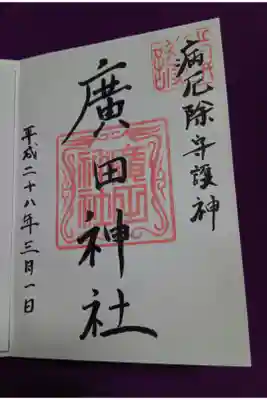 病厄除守護神
廣田神社
平成二十八年三月一日